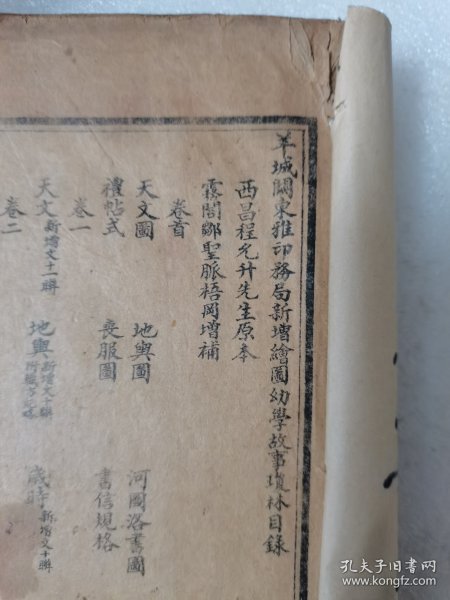 羊城關東雅印務局新增繪圖幼學故事瓊林目錄
西昌程允升先生原本
霧閣鄒聖脈梧岡增補
卷首
天文圖 地輿圖 河圖洛書圖
禮帖式 喪服圖 書信規格
卷一
天文 新增文十一聯 地輿 新增文十聯 歲時 新增文十聯
卷二
孔夫子旧书网
book.kongfz.com